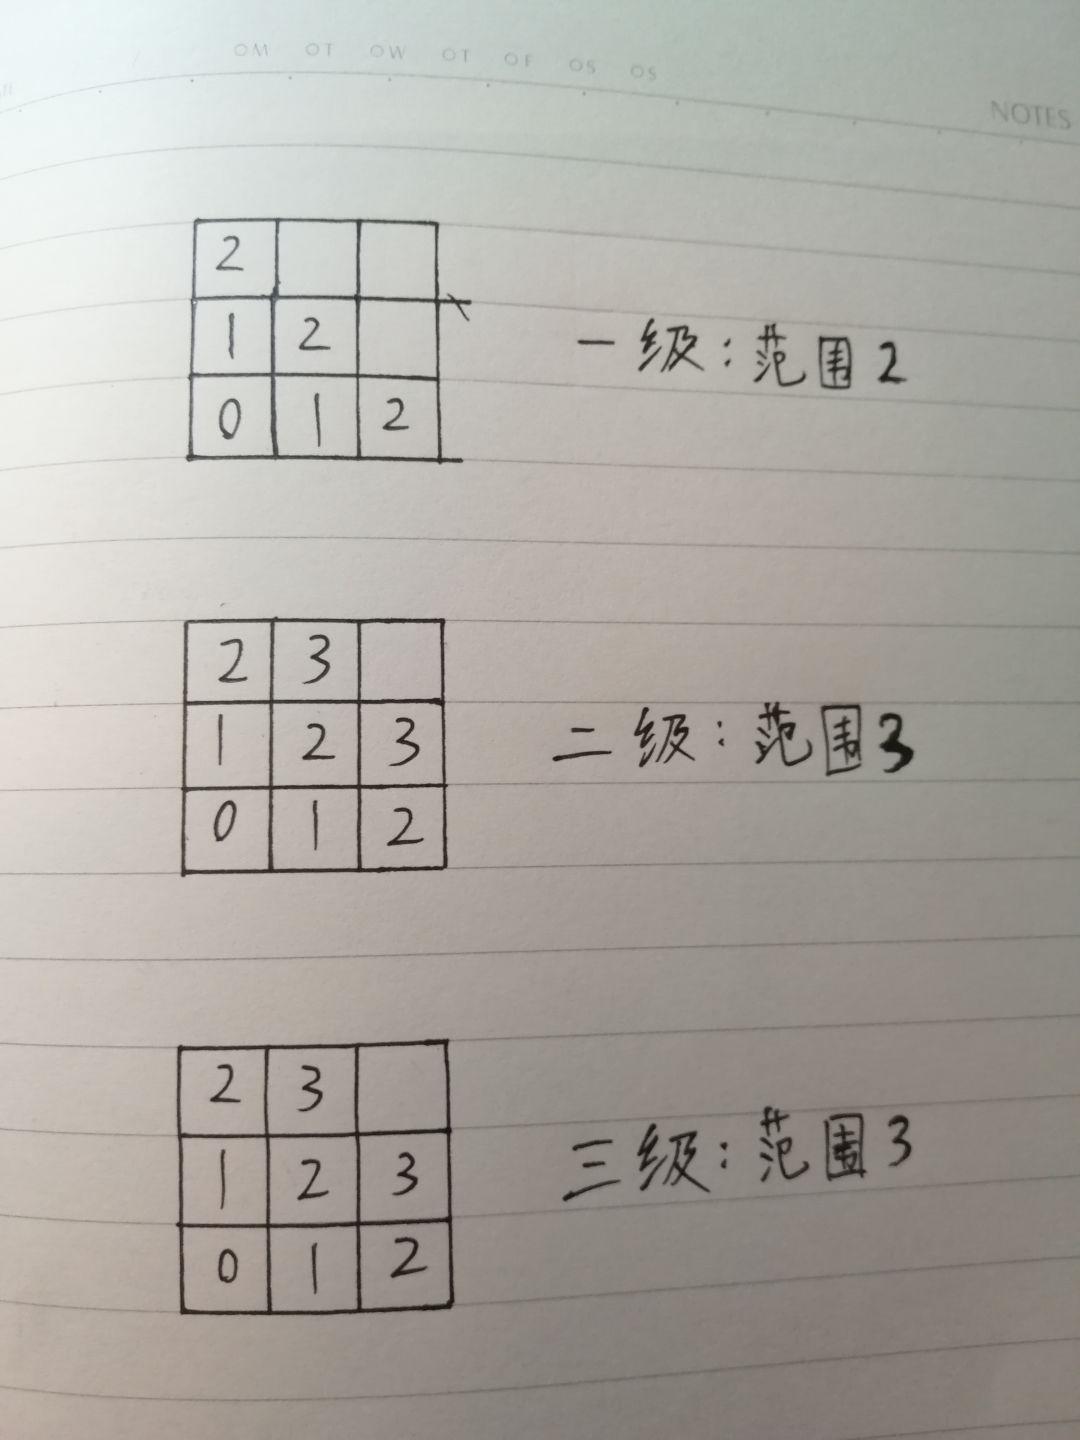 OM OT OW OT OF OS OS
NOTES
2
1 2
0 1 2
一级：范围2
2 3
1 2 3
0 1 2
二级：范围3
2 3
1 2 3
0 1 2
三级：范围3